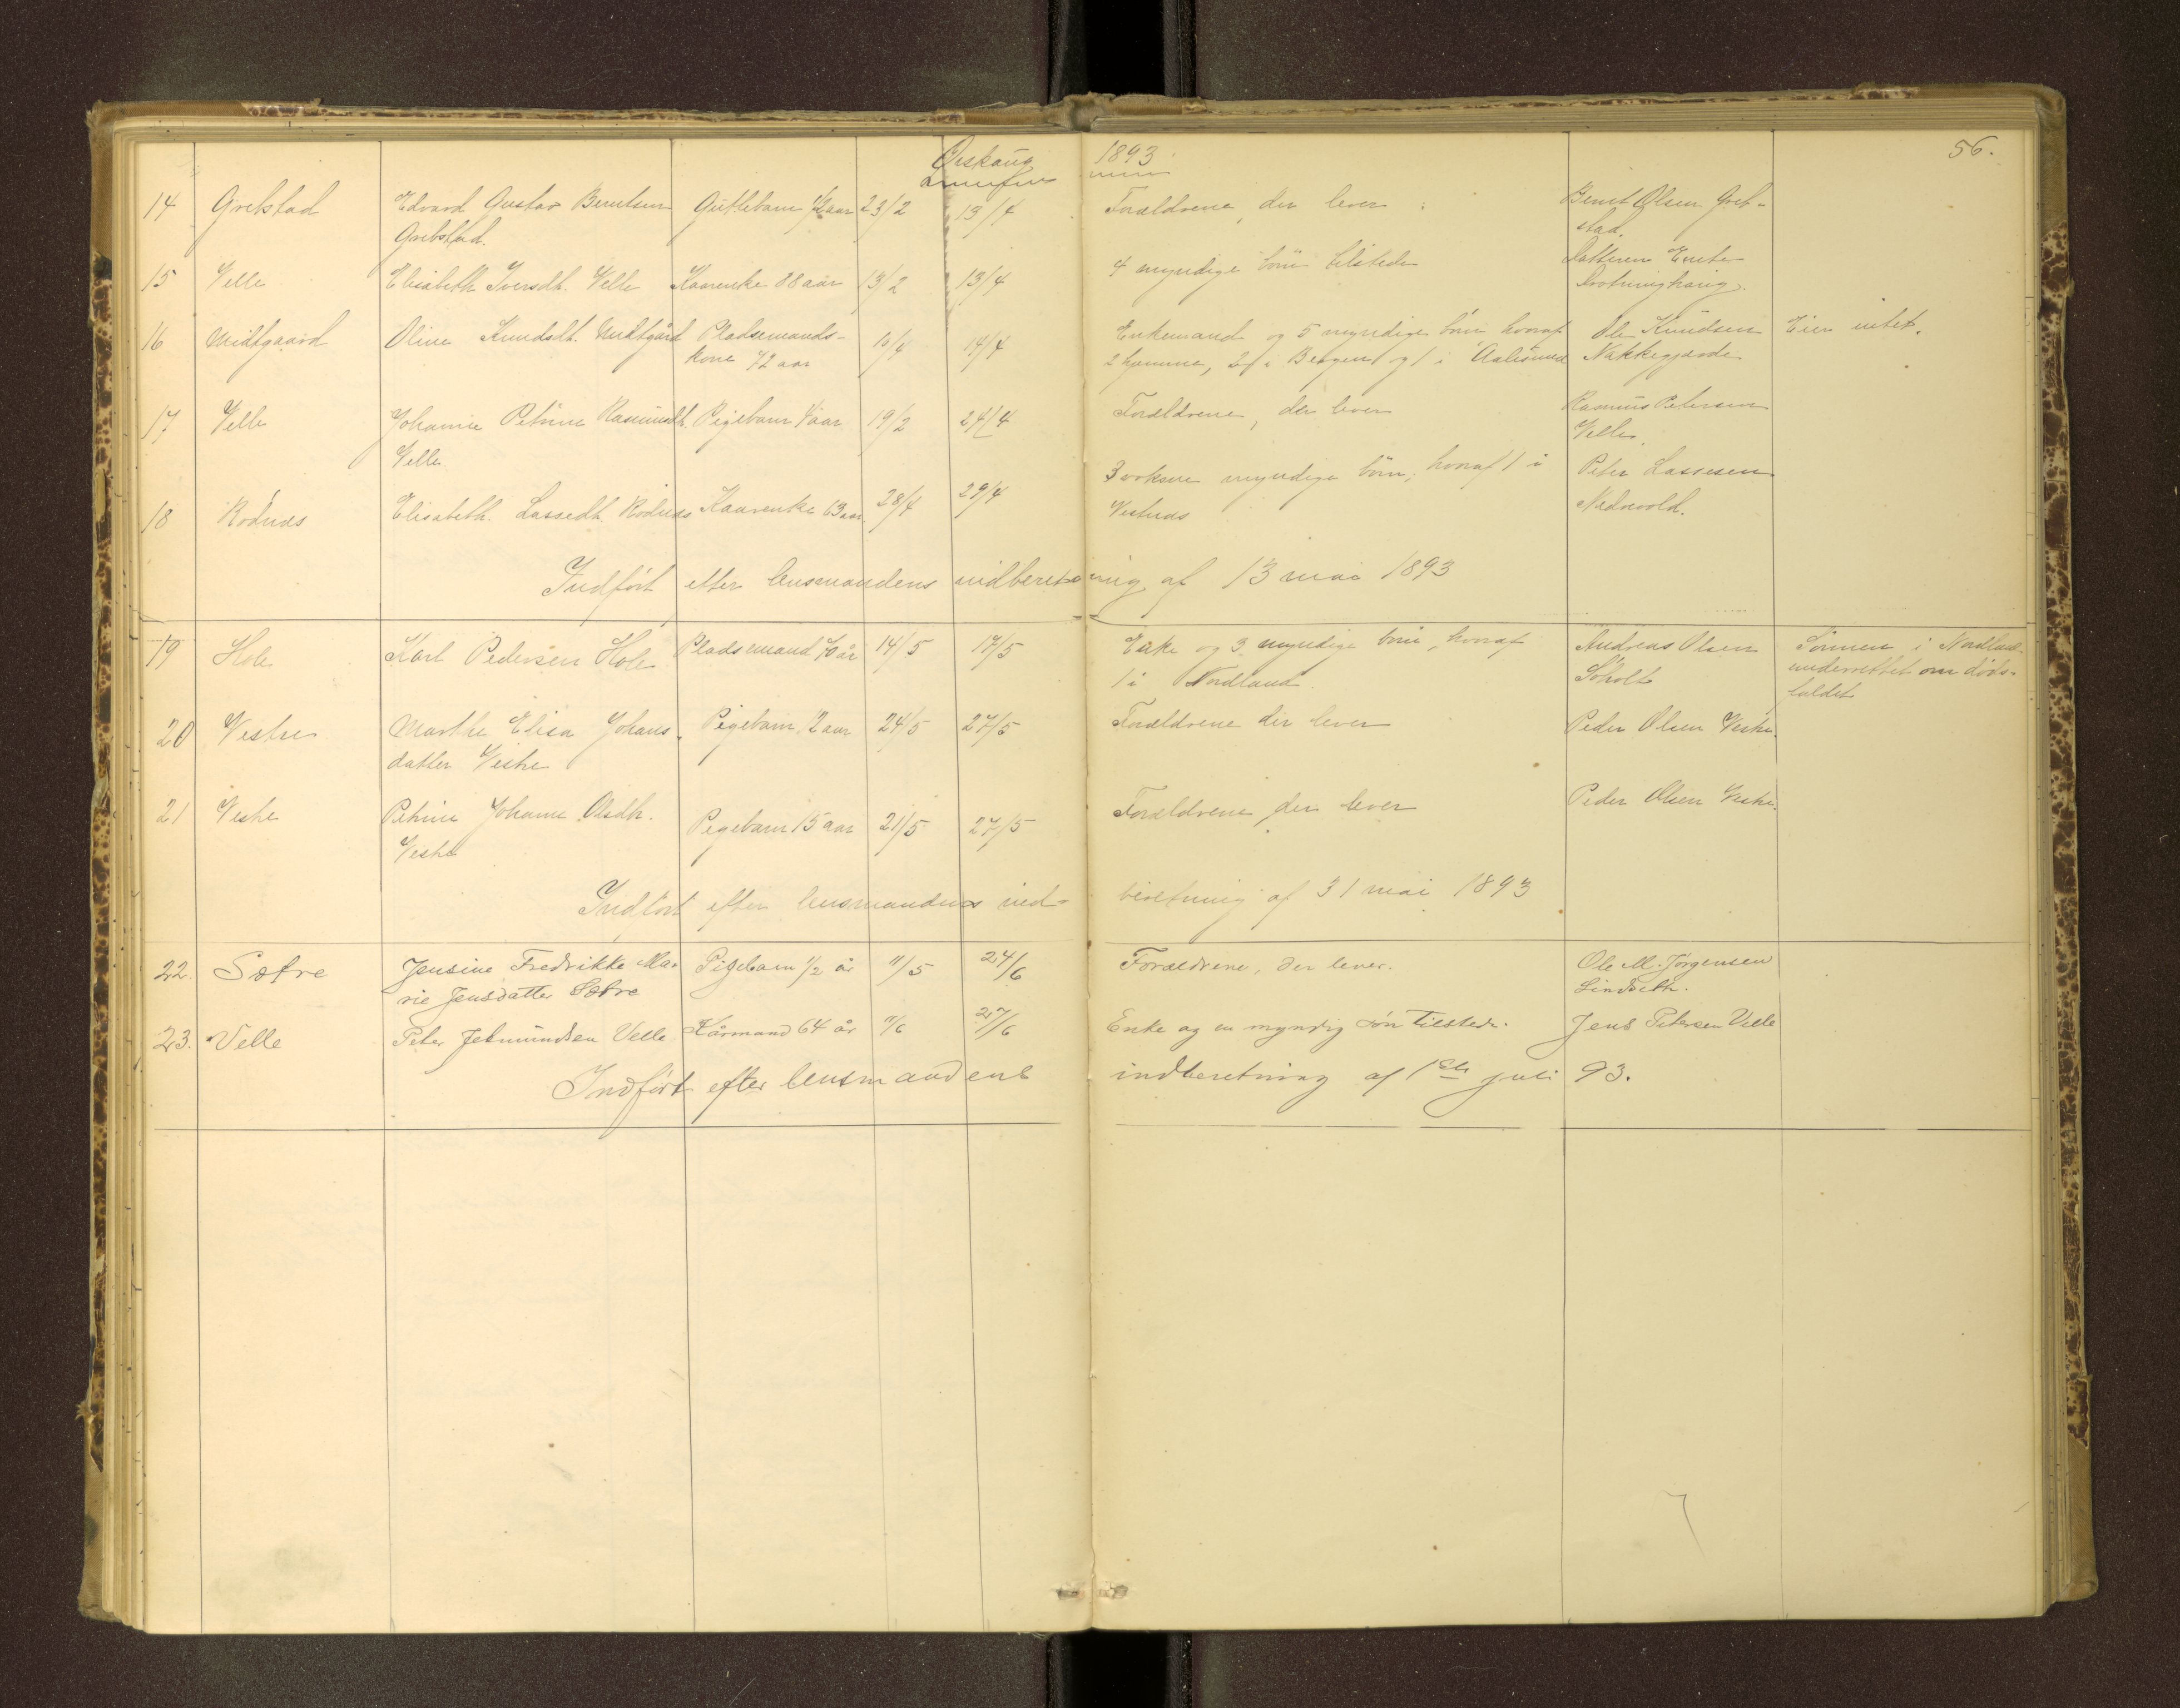 Ørskaug 1893
56.
14 Grebstad Edvard Gustav Berntsen Guttebarn 1/2 aar 23/2 13/4 Forældrene, der lever Bernt Olsen Greb-
Grebstad. stad.
15 Velle Elisabeth Iversdt. Velle Kaarenke 88 aar 13/2 13/4 4 myndige börn tilstede Datteren Enke
16 Midtgaard Oline Knudsdt. Midtgård Pladsemands- 10/4 14/4 Enkemand og 5 myndige börn hvoraf Ole Knudsen Eier intet.
kone 72 aar 2 hjemme, 2 i Bergen og 1 i Aalesund Nakkegjærde
17 Velle Johanne Petrine Rasmusdt. Pigebarn 1 aar 19/2 24/4 Forældrene, der lever Rasmus Petersen
Velle Velle.
18 Rödnæs Elisabeth Lassedt. Rödnæs Kaarenke 63 aar 28/4 29/4 3 voksne myndige börn, hvoraf 1 i Peter Lassesen
Vestnæs Nedrevold.
Indfört efter lensmandens indberetning af 13 mai 1893
19 Hole Karl Pedersen Hole Pladsemand 70 år 14/5 17/5 Enke og 3 myndige börn, hvoraf Andreas Olsen Sönnen i Nordland
1 i Nordland Söholt underrettet om döds-
faldet
20 Vestre Marthe Elisa Johans- Pigebarn 12 aar 24/5 27/5 Forældrene der lever Peder Olsen Vestre.
datter Vestre
21 Vestre Petrine Johanne Olsdtr. Pigebarn 15 aar 21/5 27/5 Forældrene der lever Peder Olsen Vestre
Vestre
Indfört efter lensmandens ind- beretning af 31 mai 1893
22. Sætre Jensine Fredrikke Ma- Pigebarn 1/2 år 11/5 24/6 Forældrene, der lever. Ole M. Jørgensen
rie Jensdatter Sætre Lindseth.
23. Velle Peter Jetmundsen Velle Kårmand 64 år 11/6 27/6 Enke og en myndig søn tilstede. Jens Petersen Velle
Indført efter lensmandens indberetning af 1ste juli 93.